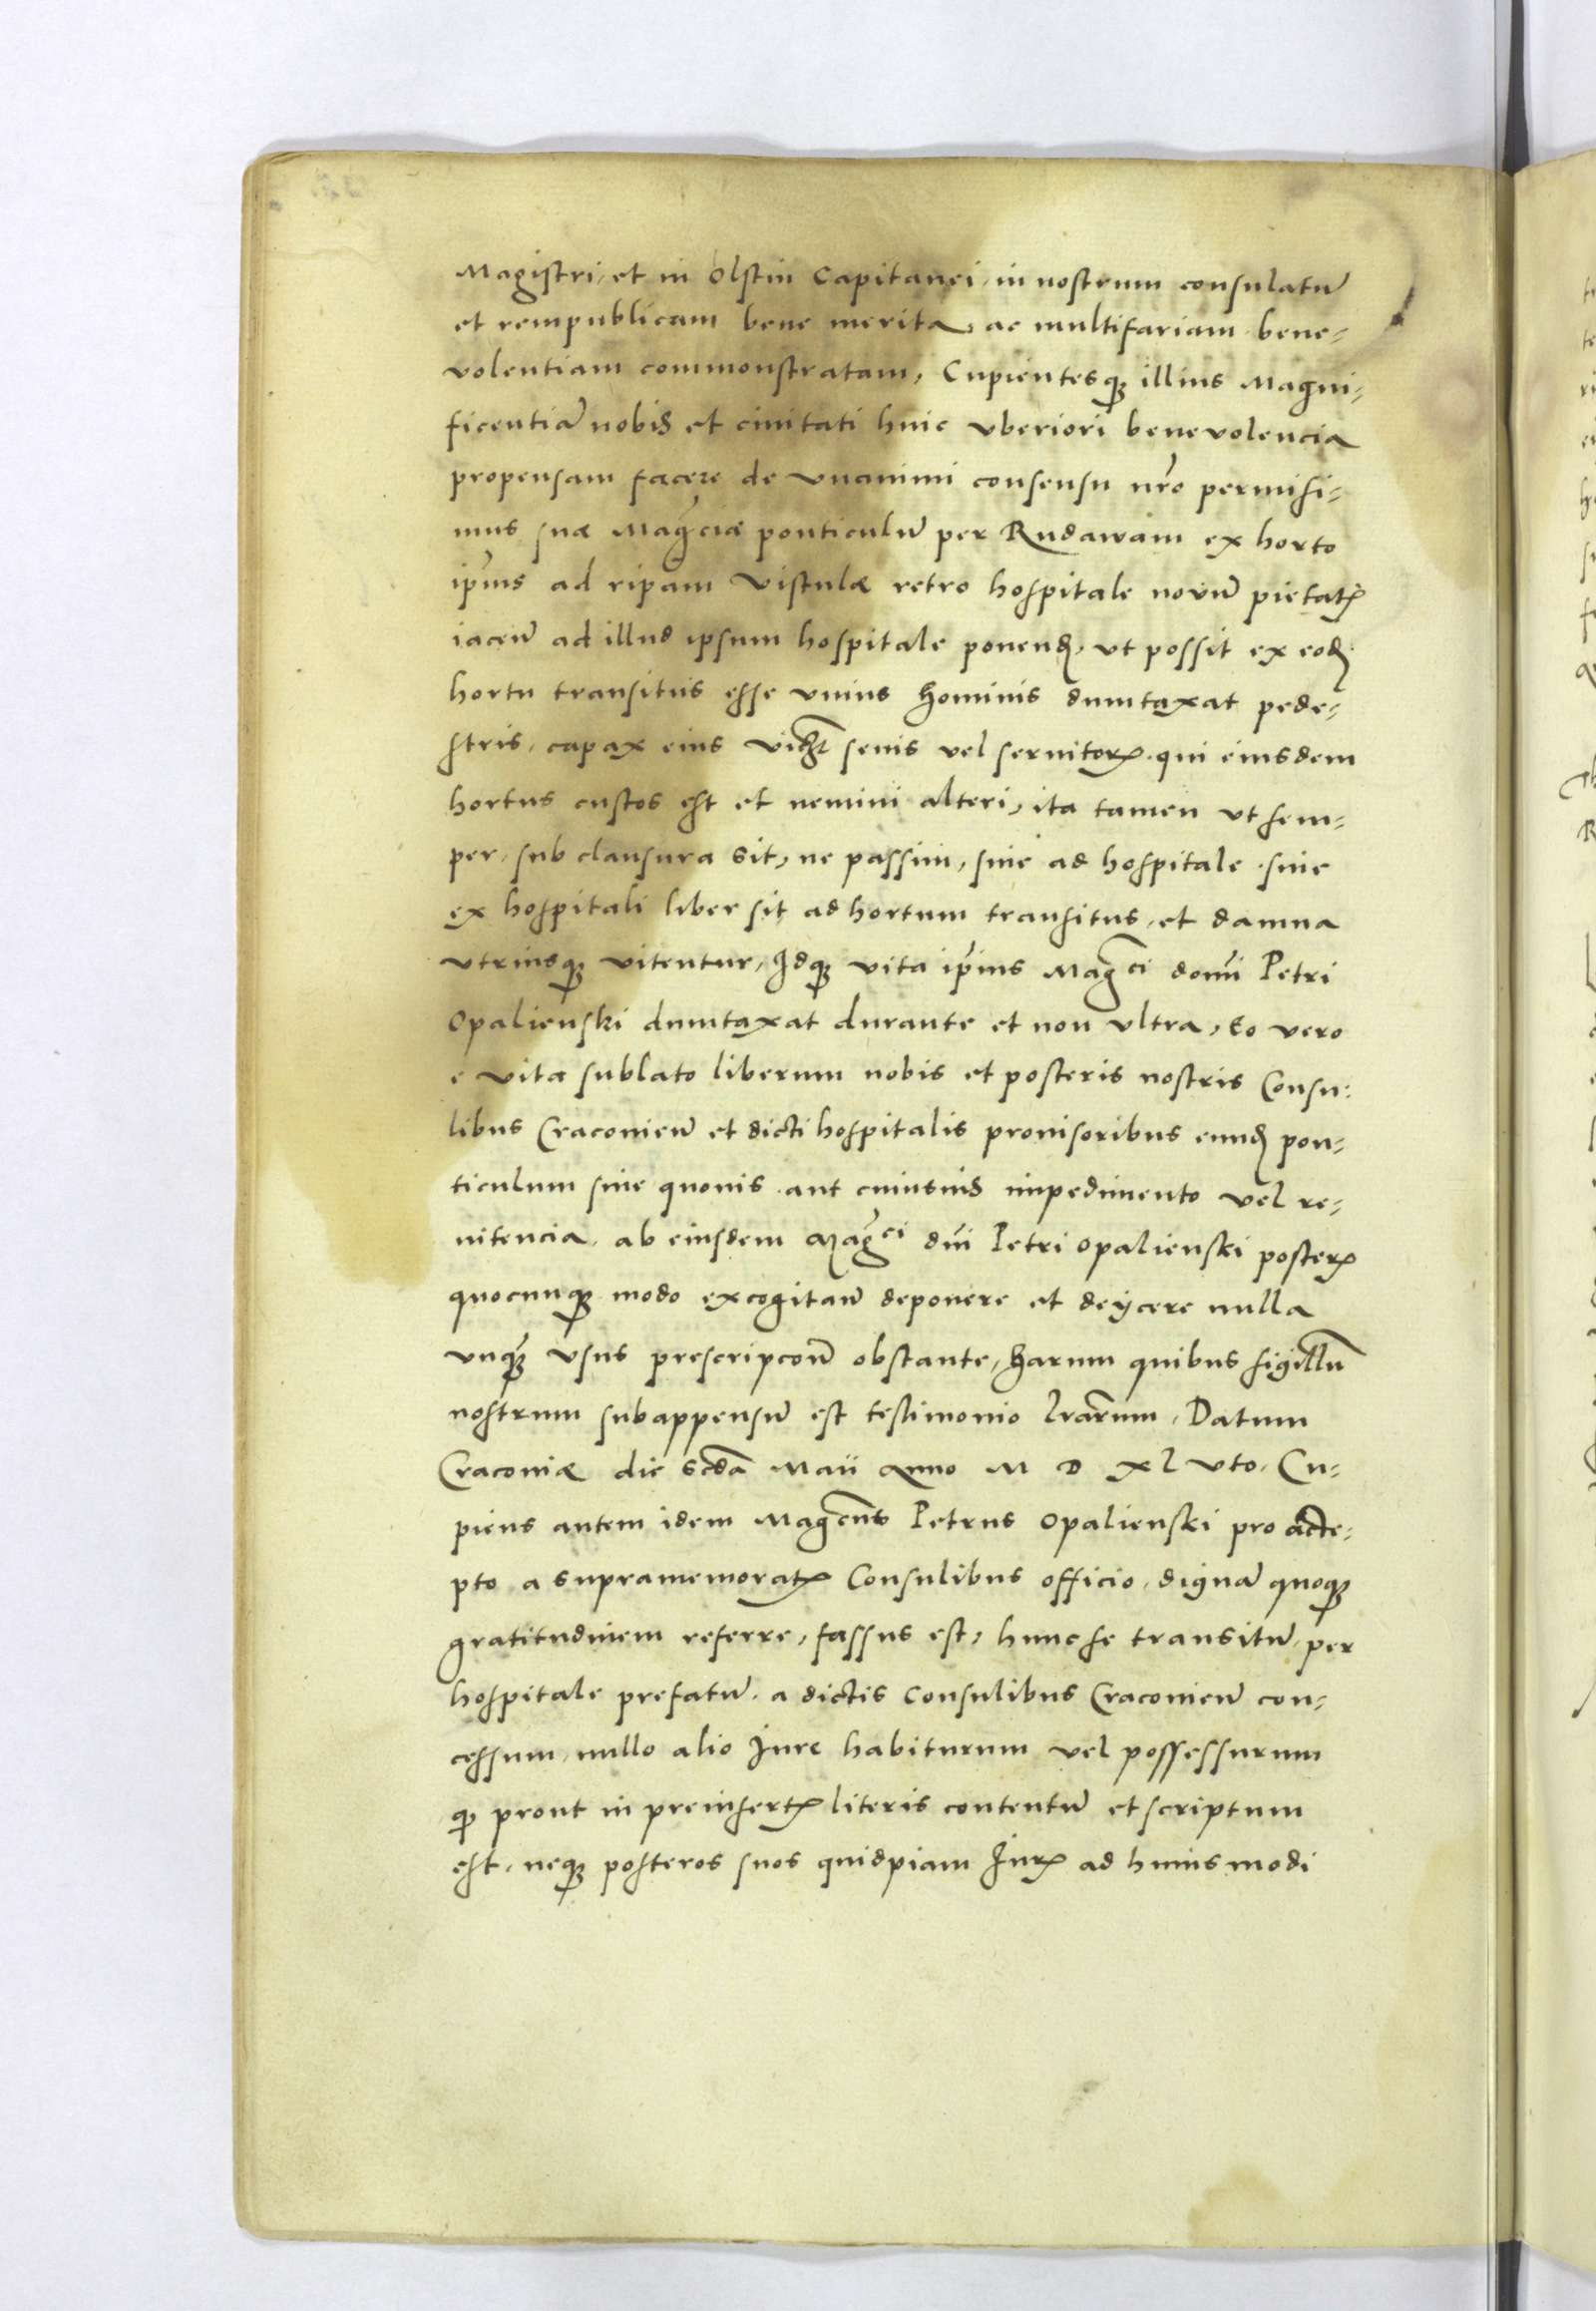 Magistri, et in Olstin Capitanei, in nostrum consulatū
et rempublicam bene merita, ac multifariam bene-
volentiam commonstratam, Cupientesq̃ illius Magni-
ficentiā nobis et ciuitati huic vberiori beneuolencia
propensam facere de vnanimi consensu nr̃o permisi-
mus suæ Mag̃ciæ ponticulū per Rudawam ex horto
ip̃ius ad ripam Vistulæ retro hospitale nouū pietatꝭ
iaceñ ad illud ipsum hospitale ponendꝭ, vt possit ex eodꝭ
hortu transitus esse vnius Hominis dumtaxat pede-
stris, capax eius vidꝫt senis vel seruitorꝭ. qui eiusdem
hortus custos est et nemini alteri, ita tamen vt sem-
per, sub clausura sit, ne passim, siue ad hospitale. siue
ex hospitali liber sit ad hortum transitus, et damna
vtrinsq̃ vitentur, Idq̃ vita ip̃ius Mag̃ci domi Petri
Opalienski dumtaxat durante et non vltra, Eo vero
e vita sublato liberum nobis et posteris nostris Consu-
libus Craconieñ et dicti hospitalis prouisoribus eundꝭ pon-
ticulum sine quouis. aut cuiusuis impedimento vel re-
nitencia, ab eiusdem Mag̃ci dñi Petri Opalienski posterꝭ
quocunq̃ modo excogitañ deponere et deijcere nulla
vnq̃ vsus prescripcoñ obstante, Harum quibus sigillū
nostrum subappensū est testimonio lr̃arum, Datum
Craconiæ die scd̃a Maii Anno M D XL Vto. Cu-
piens autem idem Mag̃cus Petrus Opalienski pro acce-
pto a supramemoratꝭ Consulibus officio, dignā quoq̃
gratitudinem referre, fassus est, hunc se transitū, per
hospitale prefatū. a dictis Consulibus Craconieñ con-
cessum, nullo alio Iure habiturum vel possessurum
q̃ prout in preinsertꝭ literis contentū et scriptum
est, neq̃ posteros suos quidpiam Iurꝭ ad huiusmodi